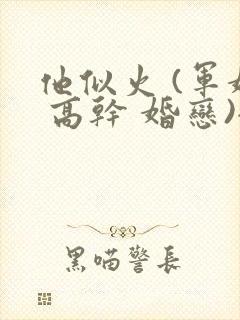 他似火(軍婚
高幹 婚戀)
黑喵警長